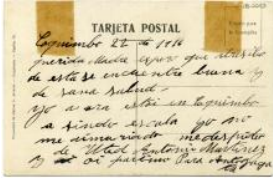 TARJETA POSTAL
Coquimbo 22 de 1916
querida Madre espero que al recibo
de esta se encuentre buena y
de sana salud.
yo a ora estoi en Coquimbo
a siendo escala yo no
me dimariado me despido
de Usted Antonio Martinez
oi partimo Para Antofaga
ta